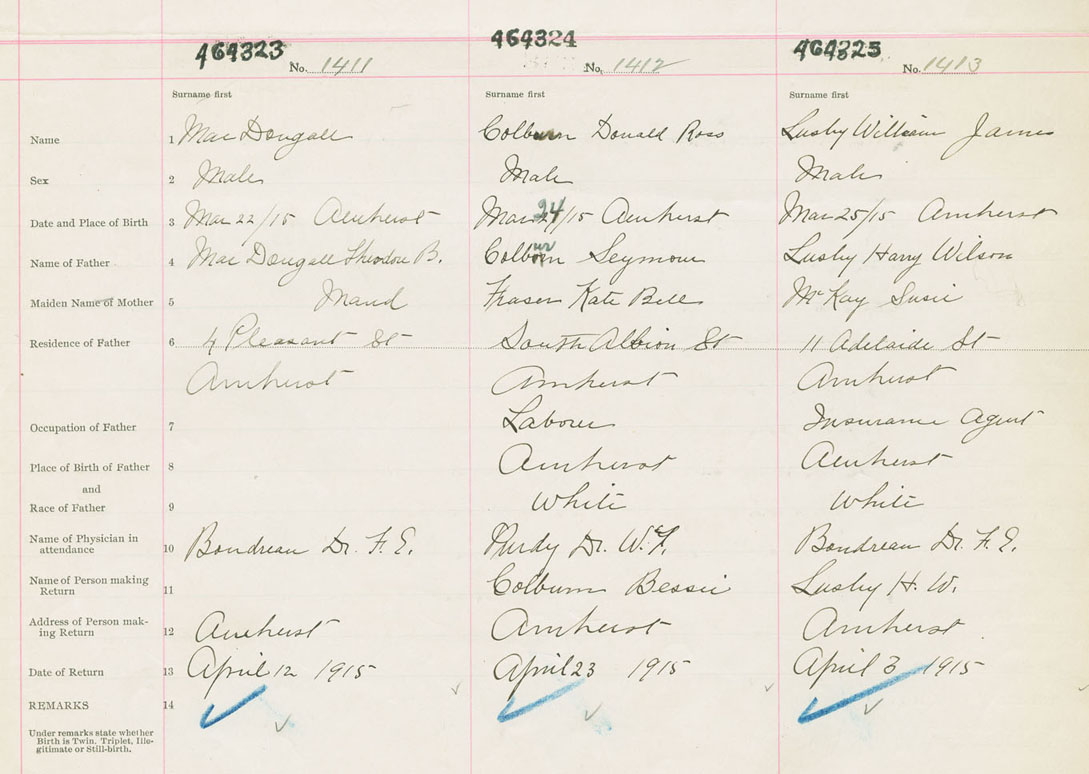 464323 464324 464325
No. 1411 No. 1412 No. 1413
Surname first Surname first Surname first
Name 1 MacDougall Colburn Donald Ross Lusby William James
Sex 2 Male Male Male
Date and Place of Birth 3 Mar 22/15 Amherst Mar 24/15 Amherst Mar 25/15 Amherst
Name of Father 4 MacDougall Theodore B. Colburn Seymour Lusby Harry Wilson
Maiden Name of Mother 5 Maud Fraser Kate Bell McKay Susie
Residence of Father 6 4 Pleasant St South Albion St 11 Adelaide St
Amherst Amherst Amherst
Occupation of Father 7 Labourer Insurance Agent
Place of Birth of Father 8 Amherst Amherst
and
Race of Father 9 White White
Name of Physician in
attendance 10 Boudreau Dr. F. E. Purdy Dr. W. F. Boudreau Dr. F. E.
Name of Person making
Return 11 Colburn Bessie Lusby H. W.
Address of Person mak-
ing Return 12 Amherst Amherst Amherst
Date of Return 13 April 12 1915 April 23 1915 April 3 1915
REMARKS 14
Under remarks state whether
Birth is Twin. Triplet, Ille-
gitimate or Still-birth.